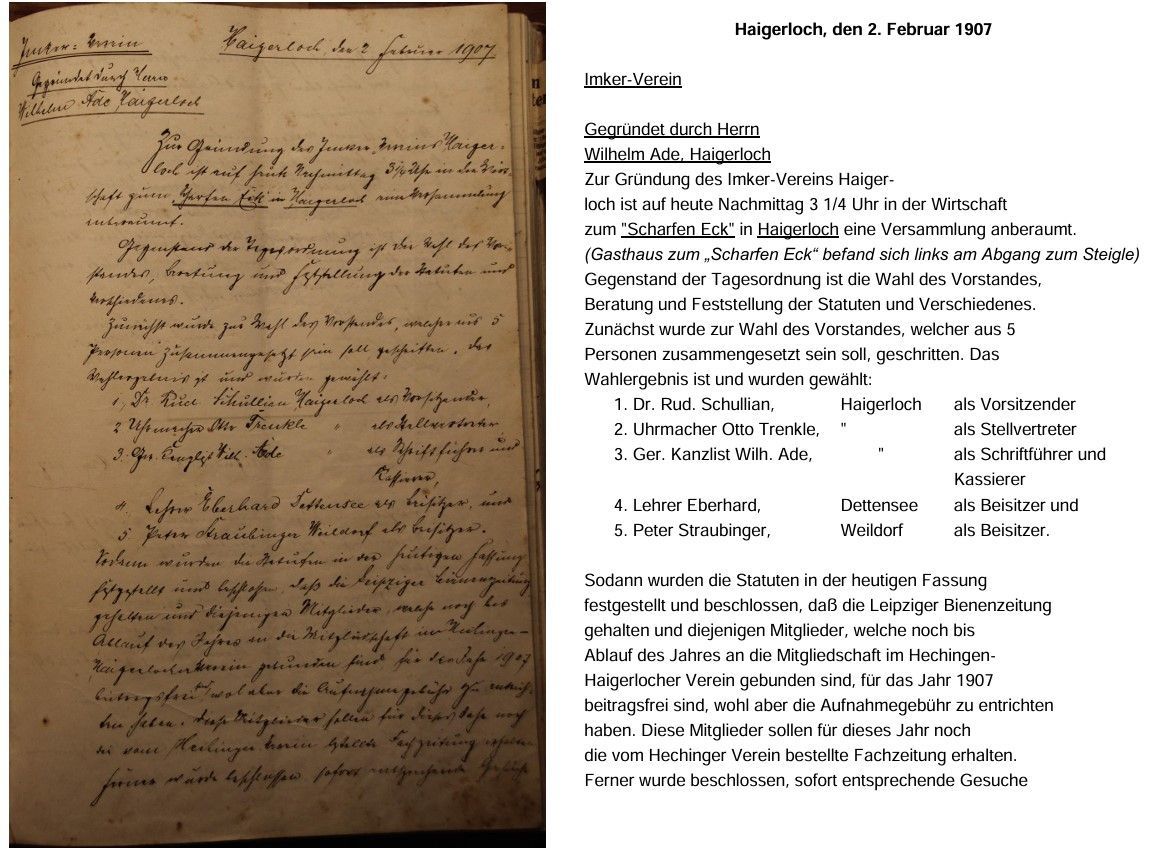 Imker-Verein
Haigerloch, den 2 Februar 1907
Gegründet durch Herrn
Wilhelm Ade, Haigerloch
Zur Gründung des Imker-Vereins Haiger-
loch ist auf heute Nachmittag 3 1/4 Uhr in der Wirt-
schaft zum Scharfen Eck in Haigerloch eine Versammlung
anberaumt.
Gegenstand der Tagesordnung ist die Wahl des Vor-
standes, Beratung und Feststellung der Statuten und
Verschiedenes.
Zunächst wurde zur Wahl des Vorstandes, welcher aus 5
Personen zusammengesetzt sein soll geschritten. Das
Wahlergebnis ist und wurden gewählt:
1, Dr. Rud Schullian Haigerloch als Vorsitzender,
2 Uhrmacher Otto Trenkle " als Stellvertreter
3. Ger. Kanzlist Wilh. Ade " als Schriftführer und
Kassierer,
4. Lehrer Eberhard Dettensee als Beisitzer, und
5 Peter Straubinger Weildorf als Beisitzer.
Sodann wurden die Statuten in der heutigen Fassung
festgestellt und beschlossen, daß die Leipziger Bienenzeitung
gehalten und diejenigen Mitglieder, welche noch bis
Ablauf des Jahres an die Mitgliedschaft im Hechingen-
Haigerlocher Verein gebunden sind für das Jahr 1907
beitragsfrei sind, wohl aber die Aufnahmegebühr zu entrich-
ten haben. Diese Mitglieder sollen für dieses Jahr noch
die vom Hechinger Verein bestellte Fachzeitung erhalten
Ferner wurde beschlossen, sofort entsprechende Gesuche
Haigerloch, den 2. Februar 1907
Imker-Verein
Gegründet durch Herrn
Wilhelm Ade, Haigerloch
Zur Gründung des Imker-Vereins Haiger-
loch ist auf heute Nachmittag 3 1/4 Uhr in der Wirtschaft
zum "Scharfen Eck" in Haigerloch eine Versammlung anberaumt.
(Gasthaus zum „Scharfen Eck“ befand sich links am Abgang zum Steigle)
Gegenstand der Tagesordnung ist die Wahl des Vorstandes,
Beratung und Feststellung der Statuten und Verschiedenes.
Zunächst wurde zur Wahl des Vorstandes, welcher aus 5
Personen zusammengesetzt sein soll, geschritten. Das
Wahlergebnis ist und wurden gewählt:
1. Dr. Rud. Schullian, Haigerloch als Vorsitzender
2. Uhrmacher Otto Trenkle, " als Stellvertreter
3. Ger. Kanzlist Wilh. Ade, " als Schriftführer und
Kassierer
4. Lehrer Eberhard, Dettensee als Beisitzer und
5. Peter Straubinger, Weildorf als Beisitzer.
Sodann wurden die Statuten in der heutigen Fassung
festgestellt und beschlossen, daß die Leipziger Bienenzeitung
gehalten und diejenigen Mitglieder, welche noch bis
Ablauf des Jahres an die Mitgliedschaft im Hechingen-
Haigerlocher Verein gebunden sind, für das Jahr 1907
beitragsfrei sind, wohl aber die Aufnahmegebühr zu entrichten
haben. Diese Mitglieder sollen für dieses Jahr noch
die vom Hechinger Verein bestellte Fachzeitung erhalten.
Ferner wurde beschlossen, sofort entsprechende Gesuche